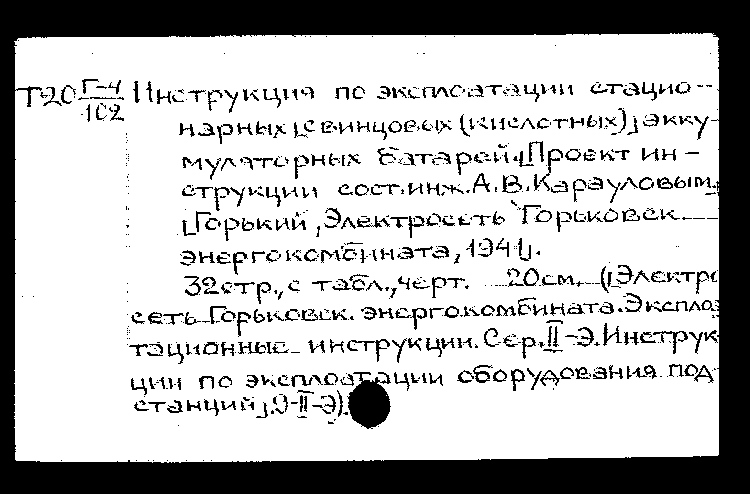 Т20 Г-4/102 Инструкция по эксплоатации стацио-
нарных [свинцовых (кислотных)] акку-
муляторных батарей. [Проект ин-
струкции сост. инж. А.В. Карауловым.
[Горький, Электросеть Горьковск.
энергокомбината, 1941].
32 стр., с табл., черт. 20 см. ([Электро
сеть Горьковск. энергокомбината. Эксплоа
тационные инструкции. Сер. II-Э. Инструк
ции по эксплоатации оборудования под
станций]. 9-II-Э).